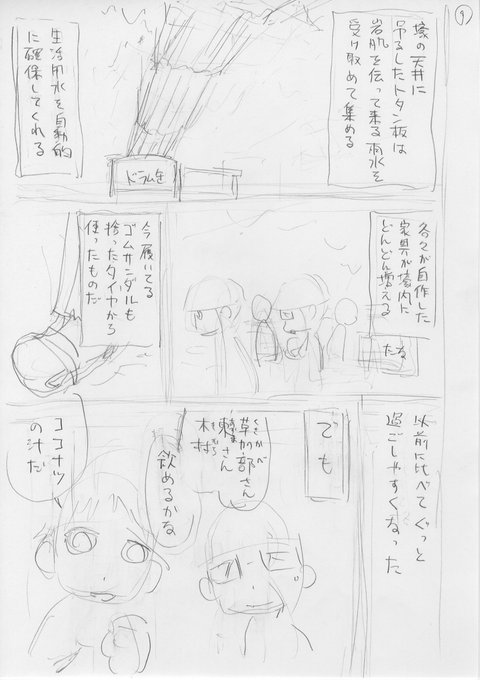 9
壕の天井に
吊るしたトタン板は
岩肌を伝って来る雨水を
受け取めて集める
生活用水を自動的
に確保してくれる
ドラム缶
各々が自作した
家具が壕内に
どんどん増える
たな
今履いてる
ゴムサンダルも
拾ったタイヤから
作ったものだ
以前に比べてぐっと
過ごしやすくなった
でも
くさかべ
草加部さん
さん
きむら
木村
飲めるかな
ココナッツ
の汁だ